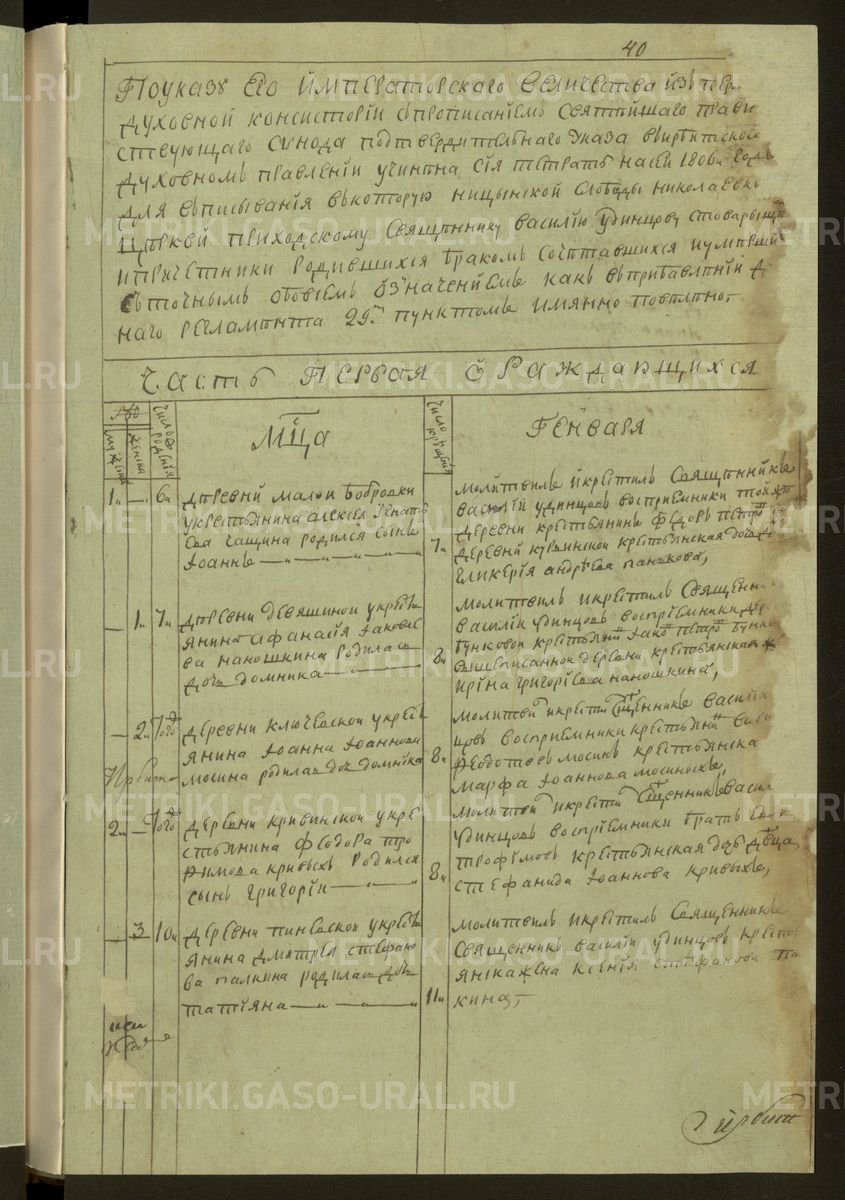 40
По указу Его Императорскаго Величества изъ пер
духовной консистории спрописаниемъ святейшаго прави
ствующаго Синода подтвердительнаго указа вирбитской
духовномъ правлении учинена сия тетрать на сей 1806 годъ
для вписывания вькоторую ницынской слободы николаевс
церкви приходскому священнику василию удинцову стоварыщи
и причетники родившихся бракомъ сочетавшихся и умерши
съ точнымъ обовсемъ означениемъ какъ въ прибавлении д
наго регламента 29м пунктомъ имянно повелено
Часть Первая О Раждающихся
мужеска
женска
число рождения
Мца
число крещения
Генваря
1
—
6
деревни малой бобровки
укрестьянина алексея Игнать
ева чащина родился сынъ
Иоаннъ
7
Молитвилъ и крестилъ Священникъ
василий удинцовъ восприемники той же
деревни крестьянинъ Федоръ петро
деревни кривинской крестьянская дочь
гликерия андреева панькова,
—
1
7
деревни девяшиной укресть
янина афанасия Иаковле
ва маношкина родилась
дочь домника
8
Молитвилъ и крестилъ Священн
василий удинцовъ восприемники дер
бунковой крестьянинъ Иаковъ петро бунко
вышеписанной деревни крестьянская ж
ирина григориева маношкина,
—
2
7го
деревни ключевской укресть
янина Иоанна Иоаннова
мосина родилась дочь домника
8
Молитвилъ и крестилъ Священникъ василий
цовъ восприемники крестьянинъ васи
Феодотовъ мосинъ крестьянска
марфа Иоаннова мосиныхъ,
2
—
7го
деревни кривинской укре
стьянина федора тро
фимова кривыхъ родился
сынъ григории
8
Молитвилъ и крестилъ Священникъ васил
удинцовъ восприемники братъ ево
трофимовъ крестьянская дочь девица
стефанида Иоаннова кривыхъ,
—
3
10
деревни пиневской укресть
янина дмитрея стефано
ва палкина родилась дочь
татияна
11
Молитвилъ и крестилъ Священникъ
Священникъ василий удинцовъ кресть
янская жена ксения стефанова па
кина,
METRIKI.GASO-URAL.RU